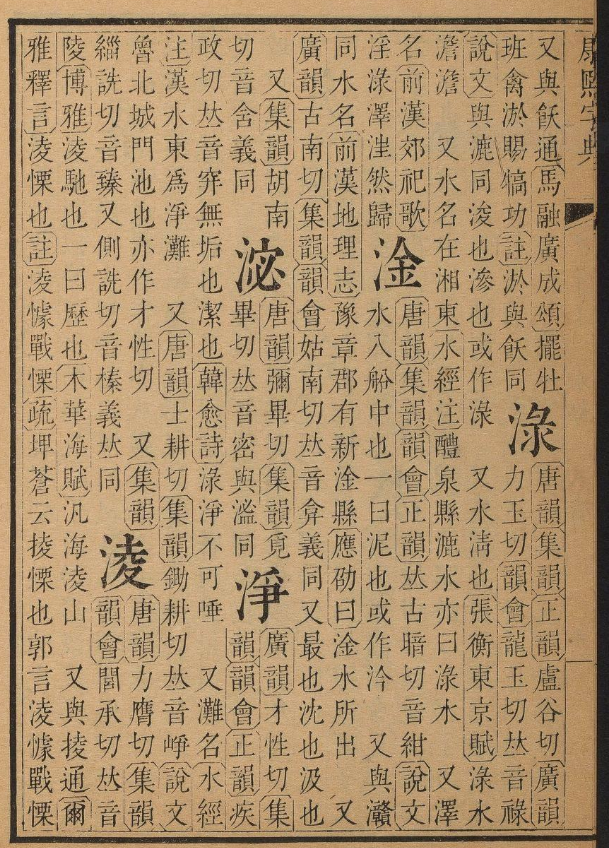 康熙字典
又與飫通馬融廣成頌擺牡
班禽淤賜犒功註淤與飫同
淥
唐韻集韻正韻盧谷切廣韻
力玉切韻會龍玉切𠀤音祿
說文與漉同浚也滲也或作淥 又水淸也張衡東京賦淥水
澹澹 又水名在湘東水經注醴泉縣漉水亦曰淥水 又澤
名前漢郊祀歌
淫淥澤汪然歸
淦
唐韻集韻韻會正韻𠀤古暗切音紺說文
水入船中也一曰泥也或作汵 又與灨
同水名前漢地理志豫章郡有新淦縣應劭曰淦水所出 又
廣韻古南切集韻韻會姑南切𠀤音弇義同又最也沈也汲也
又集韻胡南
切音含義同
淧
唐韻彌畢切集韻覓
畢切𠀤音密與滵同
淨
廣韻才性切集
韻韻會正韻疾
政切𠀤音穽無垢也潔也韓愈詩淥淨不可唾 又灘名水經
注漢水東爲淨灘 又唐韻士耕切集韻鋤耕切𠀤音崢說文
魯北城門池也亦作才性切 又集韻
緇詵切音臻又側詵切音榛義𠀤同
淩
唐韻力膺切集韻
韻會閭承切𠀤音
陵博雅淩馳也一曰歷也木華海賦汎海淩山 又與掕通爾
雅釋言淩慄也註淩懅戰慄疏埤蒼云掕慄也郭言淩懅戰慄